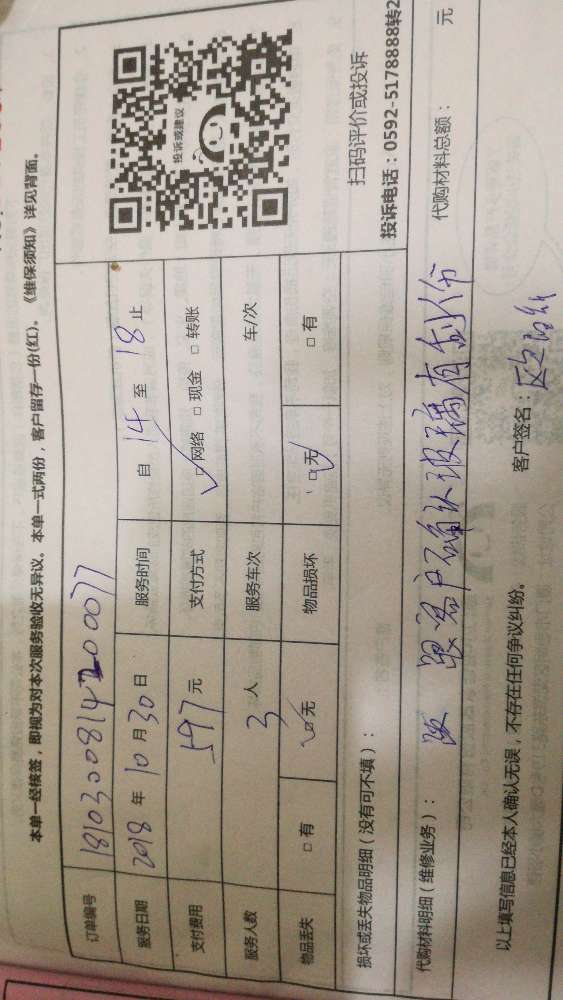 本单一经核签，即视为对本次服务验收无异议。本单一式两份，客户留存一份(红)。《维保须知》详见背面。
订单编号 18103008147200077
服务日期 2018 年 10 月 30 日 服务时间 自 14 至 18 止
支付费用 597 元 支付方式 网络 □ 现金 □ 转账
服务人数 3 人 服务车次 车/次
物品丢失 □ 有 □ 无 物品损坏 □ 无 □ 有
投诉或建议
扫码评价或投诉
投诉电话：0592-5178888转2
损坏或丢失物品明细（没有可不填）：
代购材料明细（维修业务）： 跟客户确认玻璃有刮 代购材料总额： 元
以上填写信息已经本人确认无误，不存在任何争议纠纷。 客户签名：